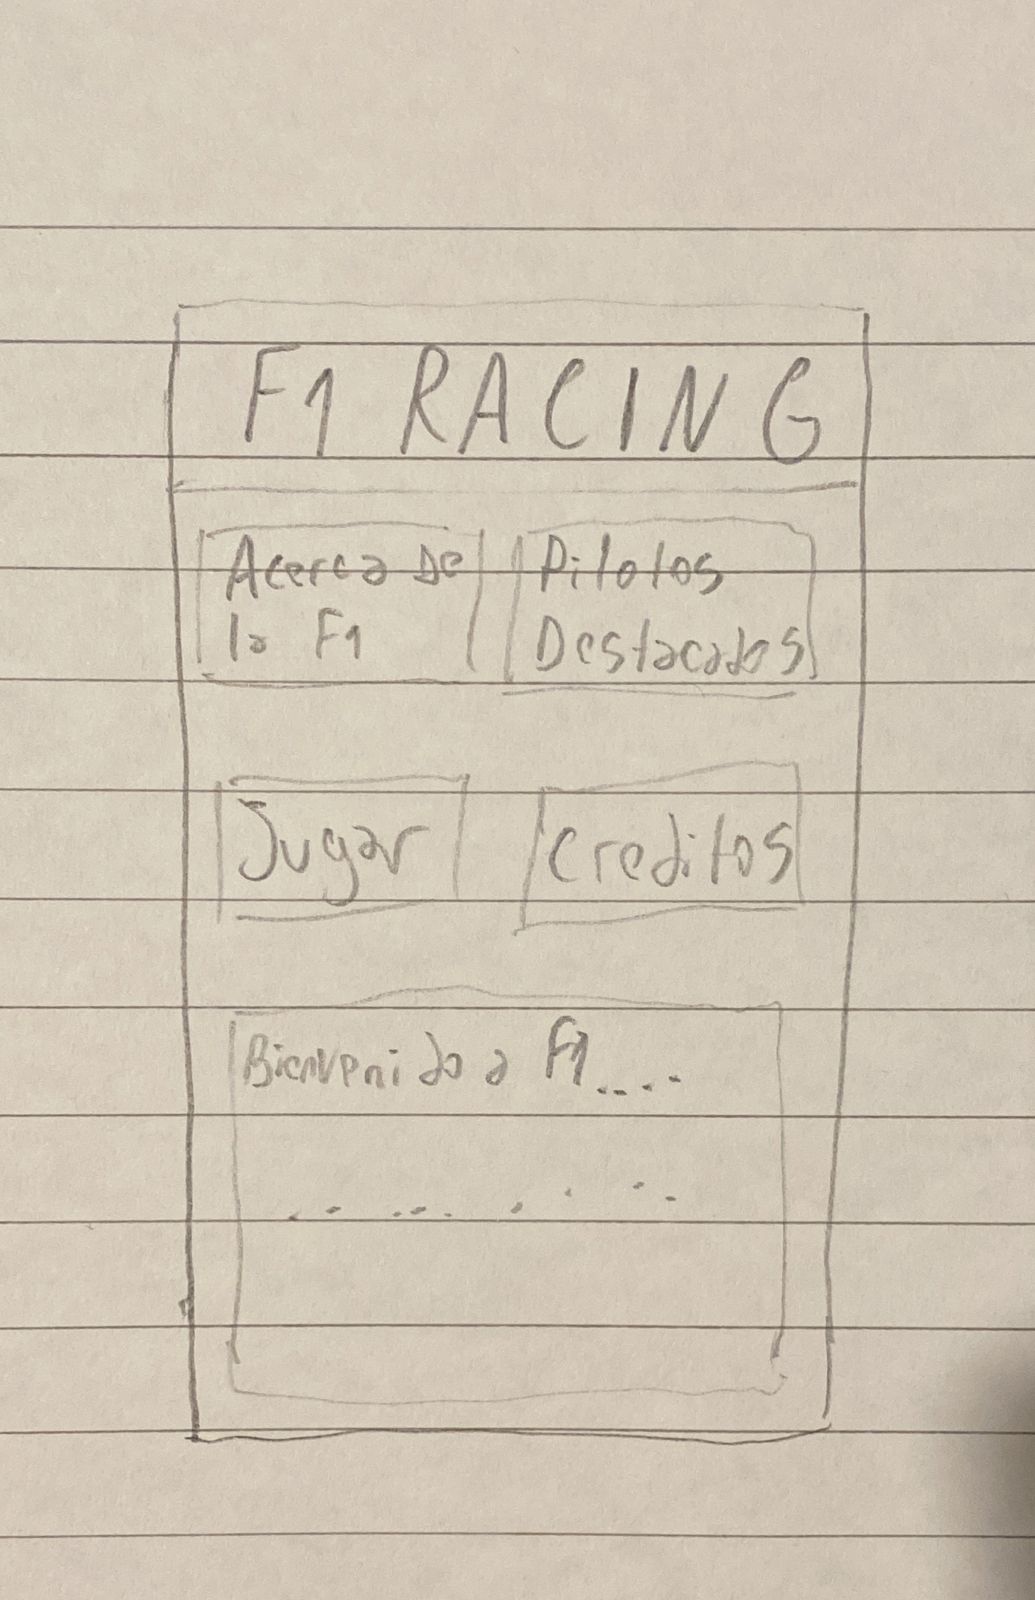 F1 RACING
Acerca De
la F1
Pilotos
Destacados
Jugar
Creditos
Bienvenido a F1....